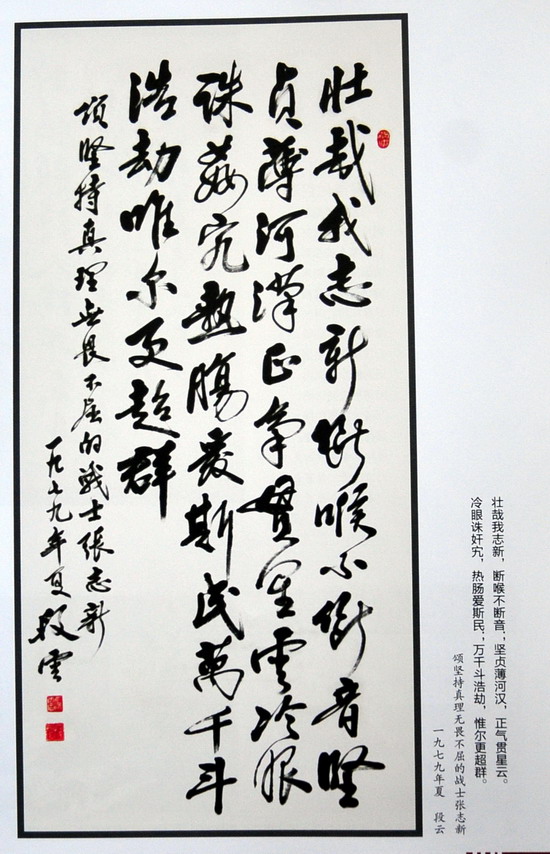 壮哉我志新断喉不断音坚
贞薄河漢正氣貫星雲冷眼
诛姦宄热腸爱斯民萬千斗
浩劫唯尔更超群
颂坚持真理無畏不屈的战士张志新
一九七九年夏段雲
壮哉我志新，断喉不断音；坚贞薄河汉，正气贯星云。
冷眼诛奸宄，热肠爱斯民；万千斗浩劫，惟尔更超群。
颂坚持真理无畏不屈的战士张志新
一九七九年夏 段云